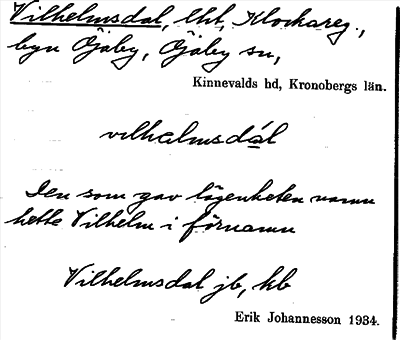 Vilhelmsdal, lht, Klockareg.,
byn Öjaby, Öjaby sn,
Kinnevalds hd, Kronobergs län.
vilhelmsdál
Den som gav lägenheten namn
hette Vilhelm i förnamn
Vilhelmsdal jb, kb
Erik Johannesson 1934.